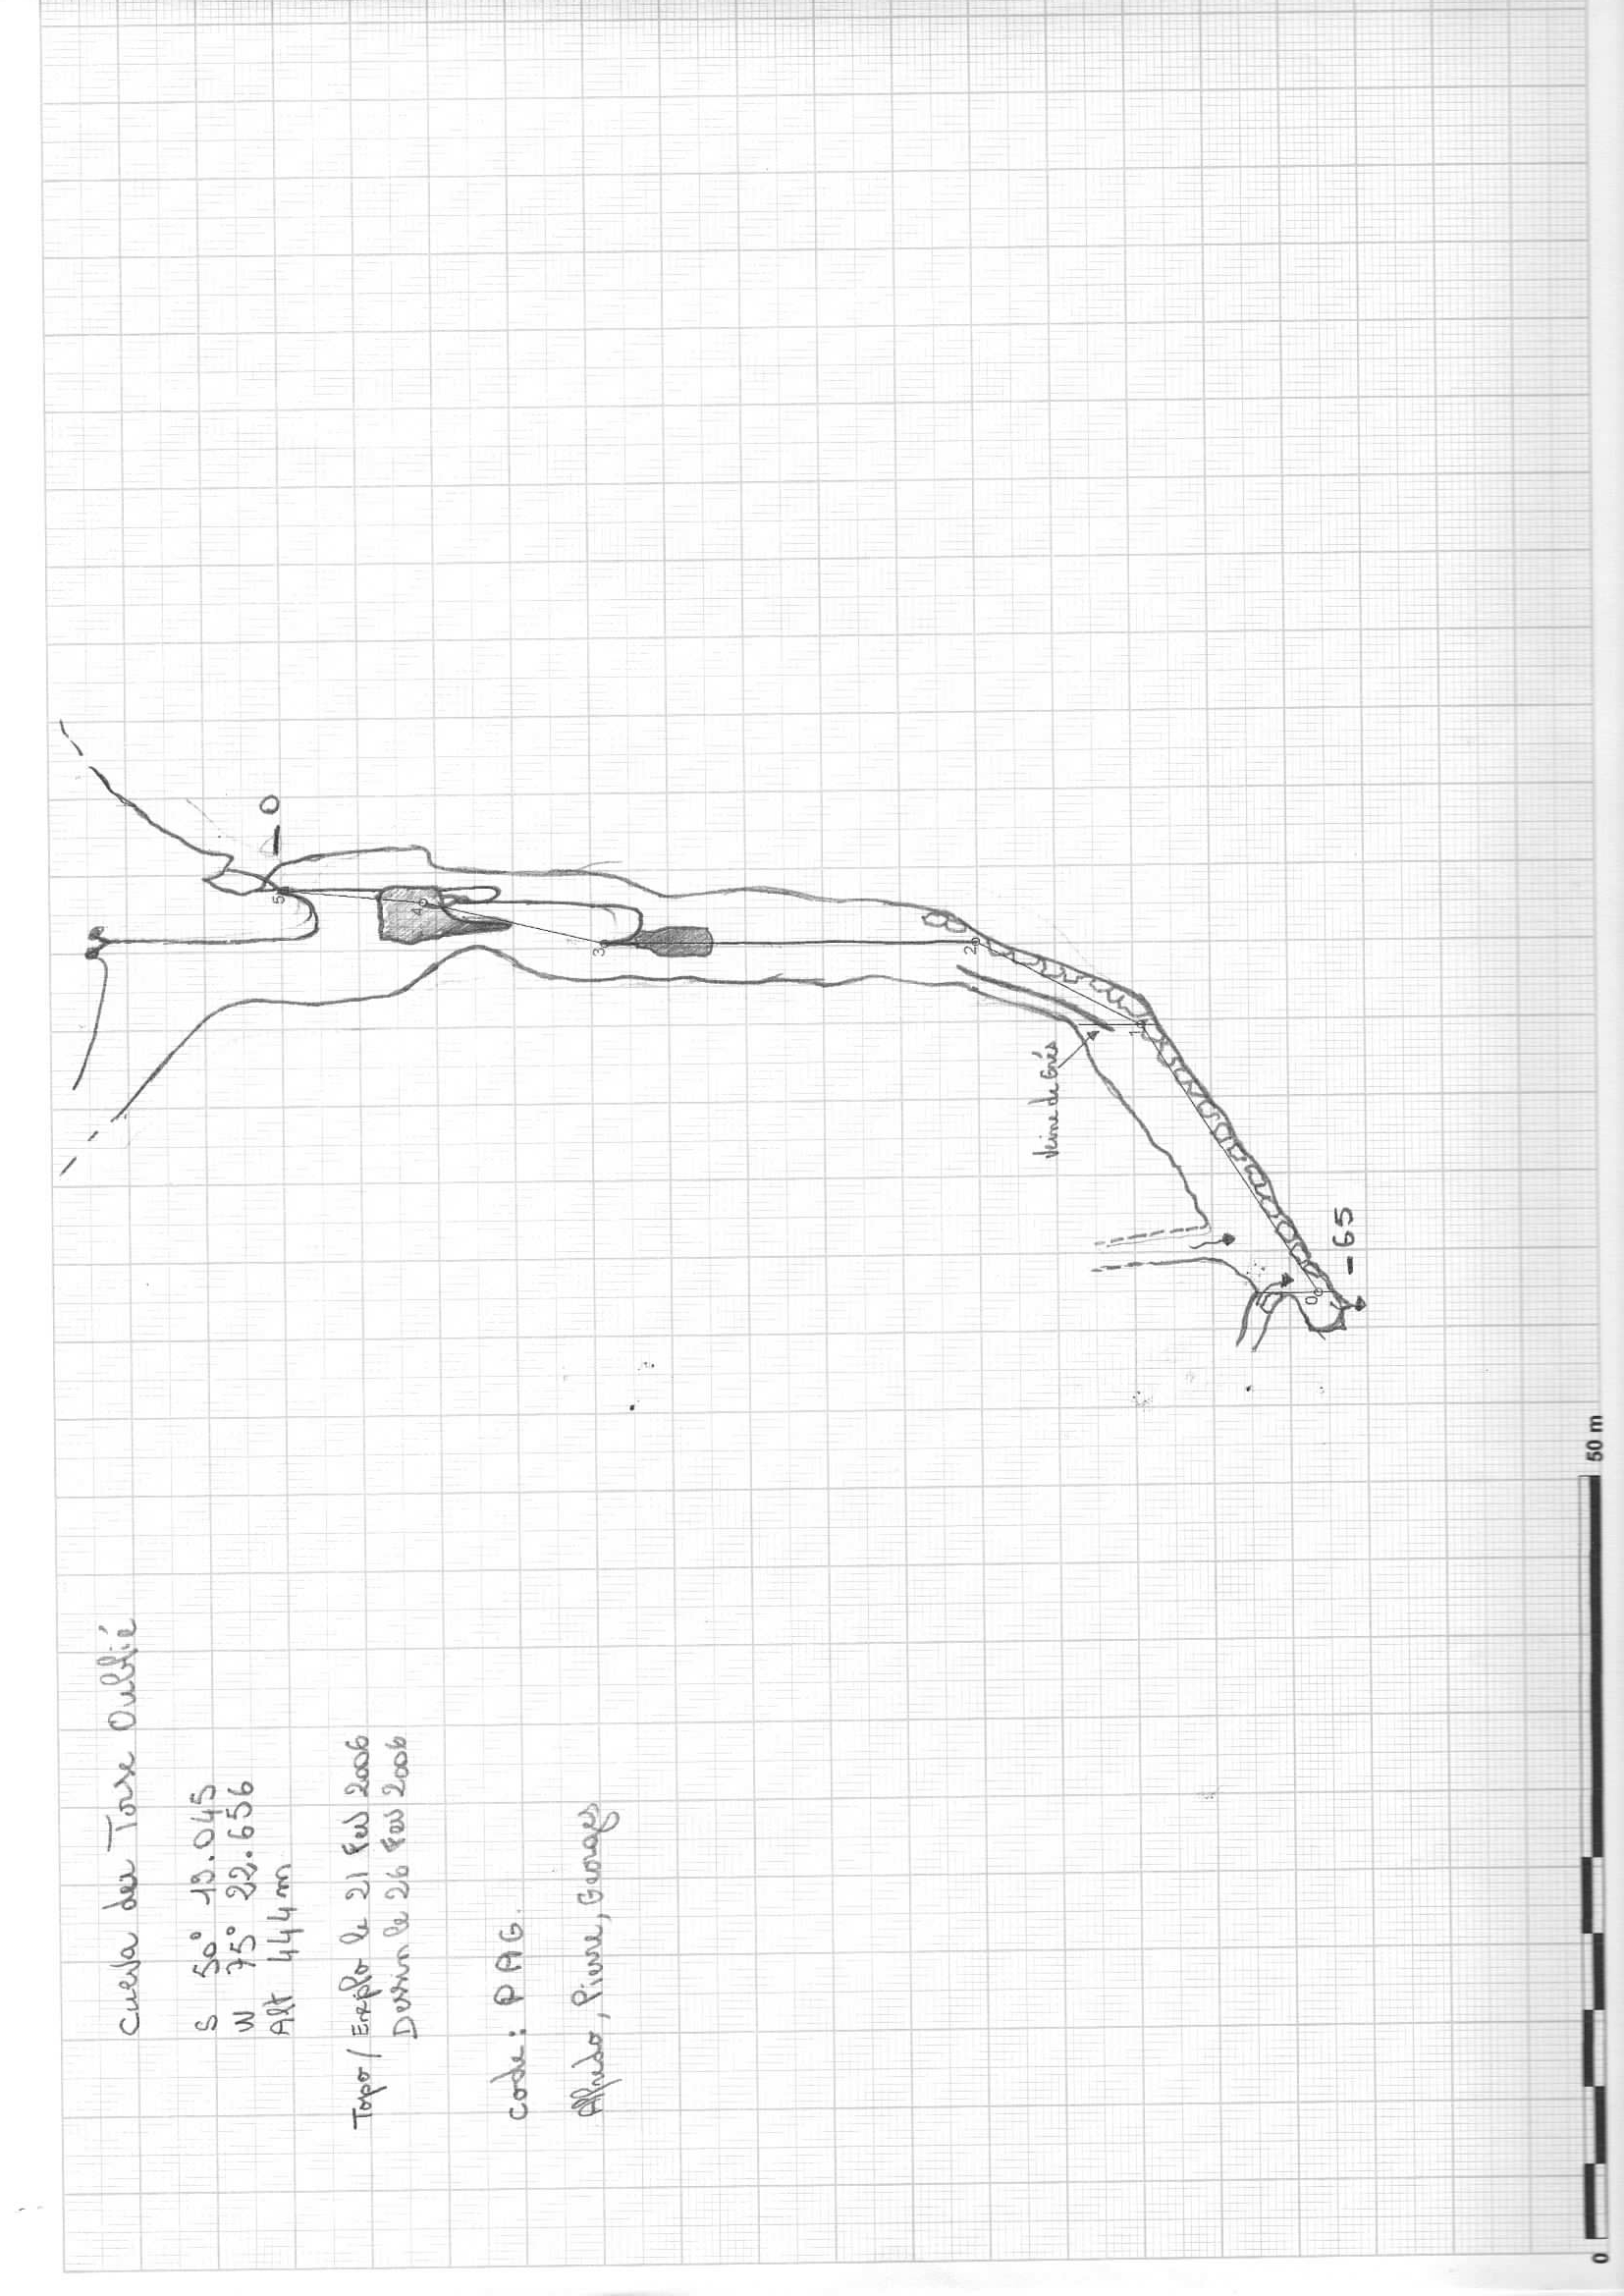 Cueva du Torse Oublié
S 50° 19.045
W 75° 22.656
Alt 444 m
Topo / Explo le 21 Fev 2006
Dessin le 26 Fev 2006
Code : PAG.
Alfredo, Pierre, Georges
0
5
4
3
2
1
Veine de Grés
0
-65
0
50 m